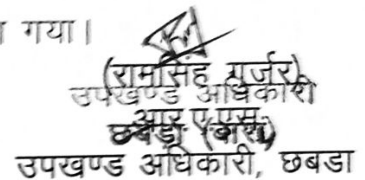 गया।
(रामसिंह गुर्जर)
उपखण्ड अधिकारी
आर.ए.एस.
छबड़ा (बारां)
उपखण्ड अधिकारी, छबडा